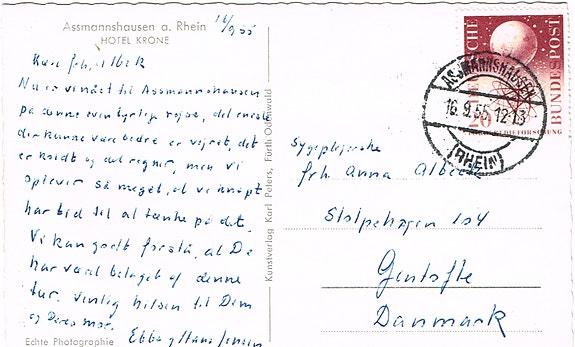 Assmannshausen a. Rhein
HOTEL KRONE
16/9 55
Kære frk. Albeck
Nu er vi nået til Assmannshausen
på denne eventyrlige rejse, det eneste
der kunne være bedre er vejret, det
er koldt og det regner, men vi
oplever så meget, at vi knapt
har tid til at tænke på det.
Vi kan godt forstå, at De
har været betaget af denne
tur. Venlig hilsen til Dem
og Deres mor. Ebba & Hans Jensen
Echte Photographie
Kunstverlag Karl Peters, Fürth Odenwald
BUNDESPOST
20
FORSCHUNG
ASSMANNSHAUSEN
16.9.55 12-13
(RHEIN)
Sygeplejerske
frk. Anna Albeck
Stolpehøjen 104
Gentofte
Danmark